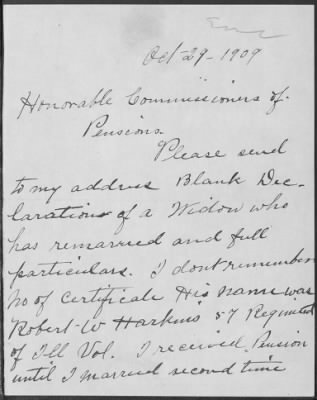 Oct-29-1909
Honorable Commissioners of
Pensions.
Please send
to my address Blank Dec-
larations of a Widow who
has remarried and full
particulars. I dont remember
No of Certificate His name was
Robert-W Harkins 57 Regiment
of Ill Vol. I received Pension
until I married second time